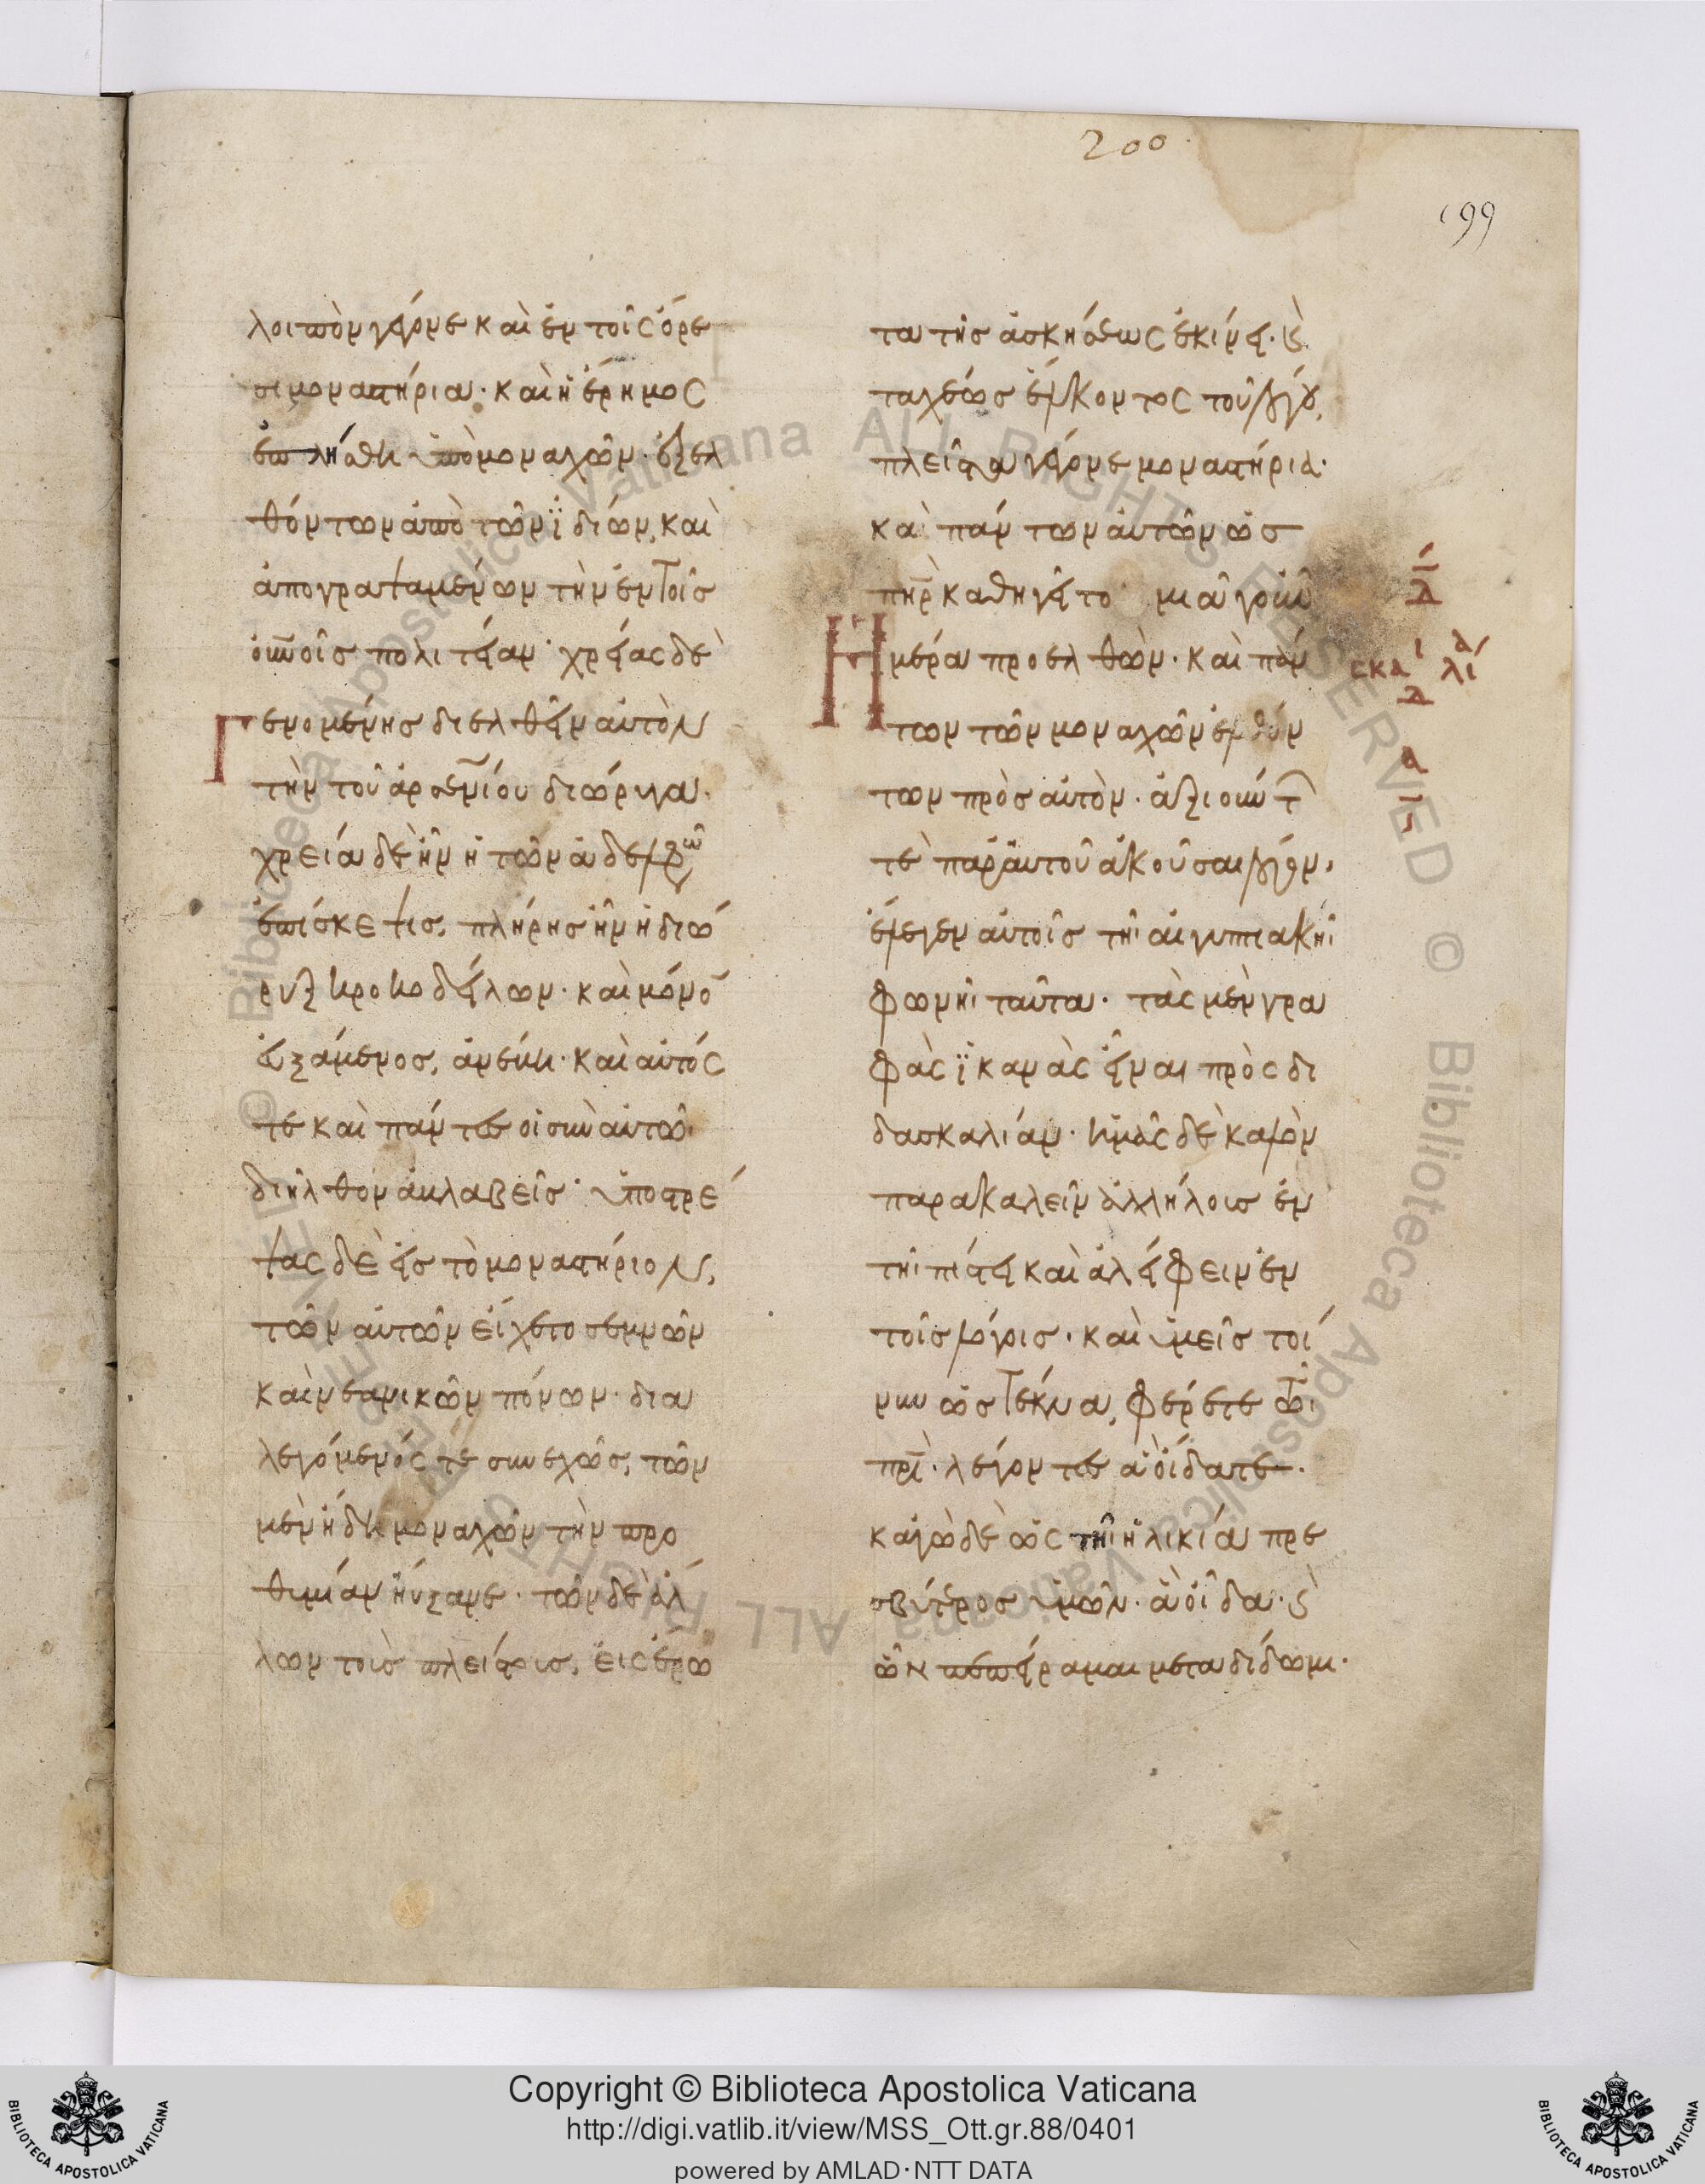 200
199
λοιπὸν γέγονε καὶ ἐν τοῖς ὄρε
σι μοναστήρια· καὶ ἡ ἔρημος
ἐπλήσθη ὑπὸ μοναχῶν· ἐξελ
θόντων ἀπὸ τῶν ϊδίων, καὶ
ἀπογραψαμένων τὴν ἐν τοῖς
οὐνοῖς πολιτείαν· χρείας δὲ
Γενομένης διελθεῖν αὐτὸν
τὴν τοῦ ἀρσενοΐτου διώρυγα·
χρεία δὲ ἦν ἡ τῶν ἀδελφῶ
ἐπίσκεψις, πλήρης ἦν ἡ διώ
ρυξ κροκοδείλων· καὶ μόνο
εὐξάμενος, ἀνέβη· καὶ αὐτός
τε καὶ πάντες οἱ σὺν αὐτῶ·
διῆλθον ἀβλαβεῖς· ὑποστρέ
ψας δὲ εἰς τὸ μοναστήριον,
τῶν αὐτῶν εἴχετο σεμνῶν
καὶ νεανικῶν πόνων· δια
λεγόμενός τε συνεχῶς, τῶν
μὲν ἤδη μοναχῶν τὴν προ
θυμίαν ηὔξανε· τῶν δὲ ἄλ
λων τοὺς πλείστους, εἰς ἔρω
τα τῆς ἀσκήσεως ἐκίνει· ϗ
ταχέως ἕλκοντος τοῦ λόγου,
πλεῖστα γέγονε μοναστήρια·
καὶ πάντων αὐτῶν ὡς
πηρ καθηγεῖτο· μιᾶ γοῦν
Ημέρα προελθὼν· καὶ πάν
των τῶν μοναχῶν ἐλθόν
των πρὸς αὐτὸν· ἀξιούντ
τε παρ' αὐτοῦ ἀκοῦσαι λόγον,
ἔλεγεν αὐτοῖς τῆι αἰγυπτιακῆι
φωνῆι ταῦτα· τὰς μὲν γρα
φὰς ϊκανὰς εἶναι πρὸς δι
δασκαλίαν· ἡμᾶς δὲ καλὸν
παρακαλεῖν ἀλλήλους ἐν
τῆι πίστει καὶ ἀλείφειν ἐν
τοῖς λόγοις· καὶ ὑμεῖς τοί
νυν ὡς τέκνα, φέρετε τῶι
πρι· λέγοντες ἃ οἴδατε·
κἀγὼ δὲ ὡς τῆι ἡλικία πρε
σβύτερος ὑμῶν· ἃ οἶδα· ϗ
ὧν πεπείραμαι μεταδίδωμι·
Copyright © Biblioteca Apostolica Vaticana
http://digi.vatlib.it/view/MSS_Ott.gr.88/0401
powered by AMLAD·NTT DATA
BIBLIOTECA APOSTOLICA VATICANA
BIBLIOTECA APOSTOLICA VATICANA